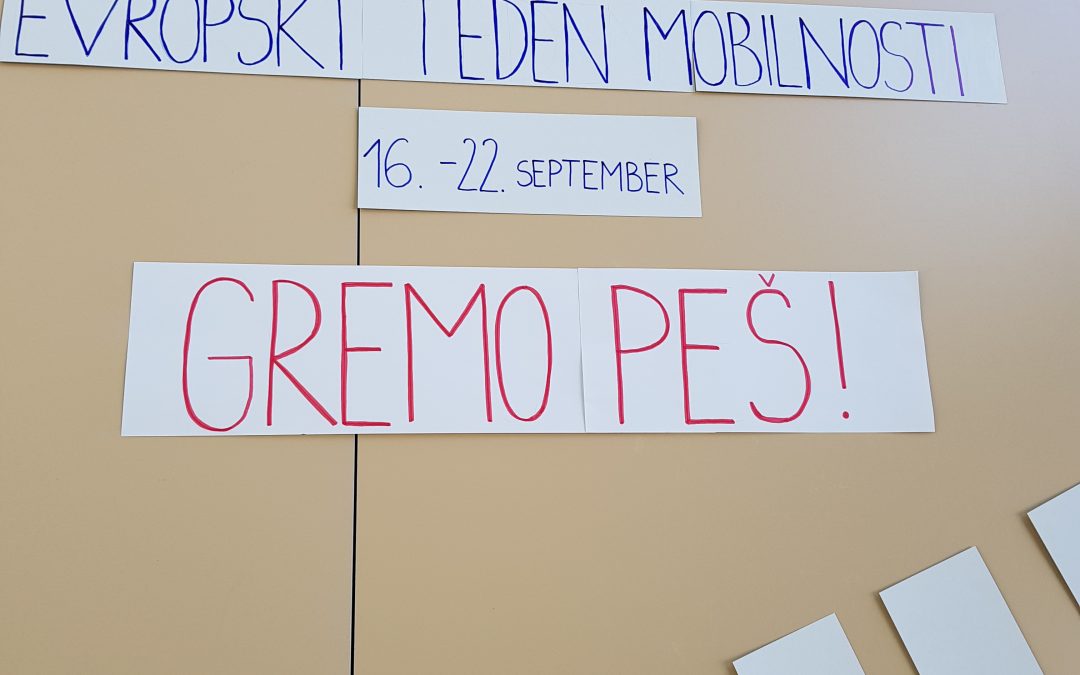 EVROPSKI TEDEN MOBILNOSTI
16. -22. SEPTEMBER
GREMO PEŠ!